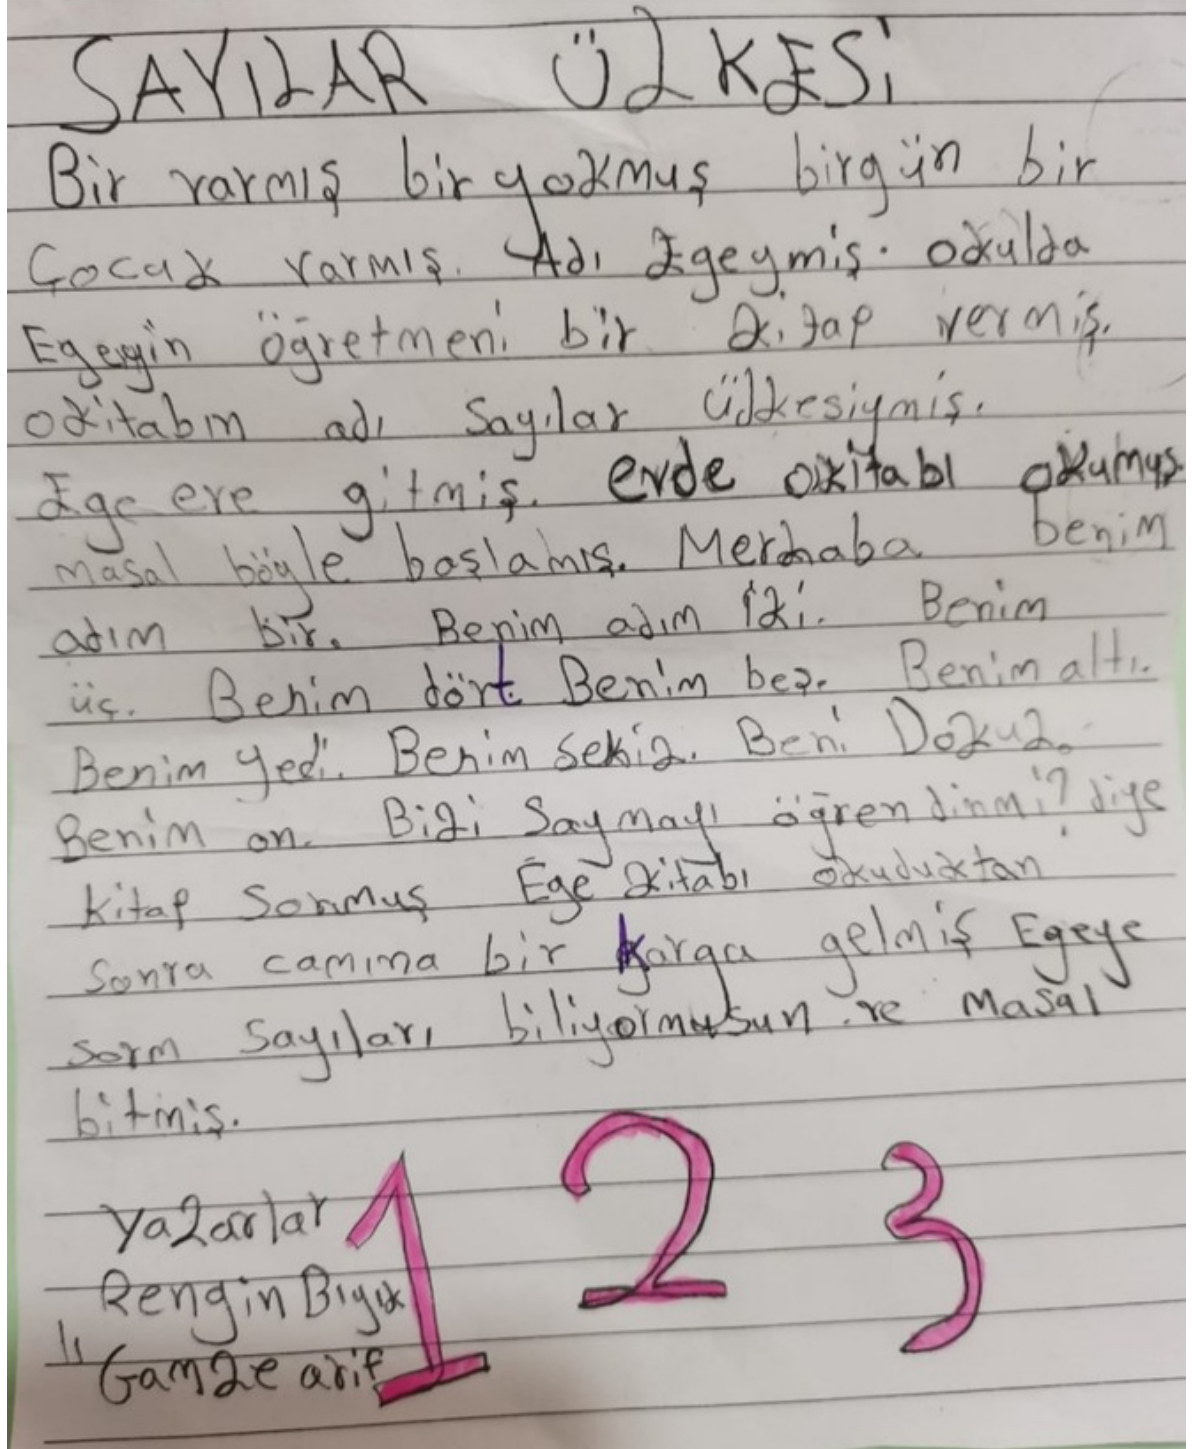 SAYILAR ÜLKESİ
Bir varmış bir yokmuş birgün bir
Çocuk varmış. Adı Egeymiş. okulda
Egeyin öğretmeni bir kitap vermiş.
okitabın adı Sayılar ülkesiymiş.
Ege eve gitmiş. evde okitabı okumuş
masal böyle başlamış. Merhaba benim
adım bir. Benim adım iki. Benim
üç. Benim dört. Benim beş. Benim altı.
Benim yedi. Benim sekiz. Beni Dokuz.
Benim on. Bizi Saymayı öğrendinmi? diye
kitap Sormuş Ege kitabı okuduktan
Sonra camına bir karga gelmiş Egeye
sorm sayıları biliyormusun ve masal
bitmiş.
Yazarlar
Rengin Bıyık
Gamze arif
1 2 3